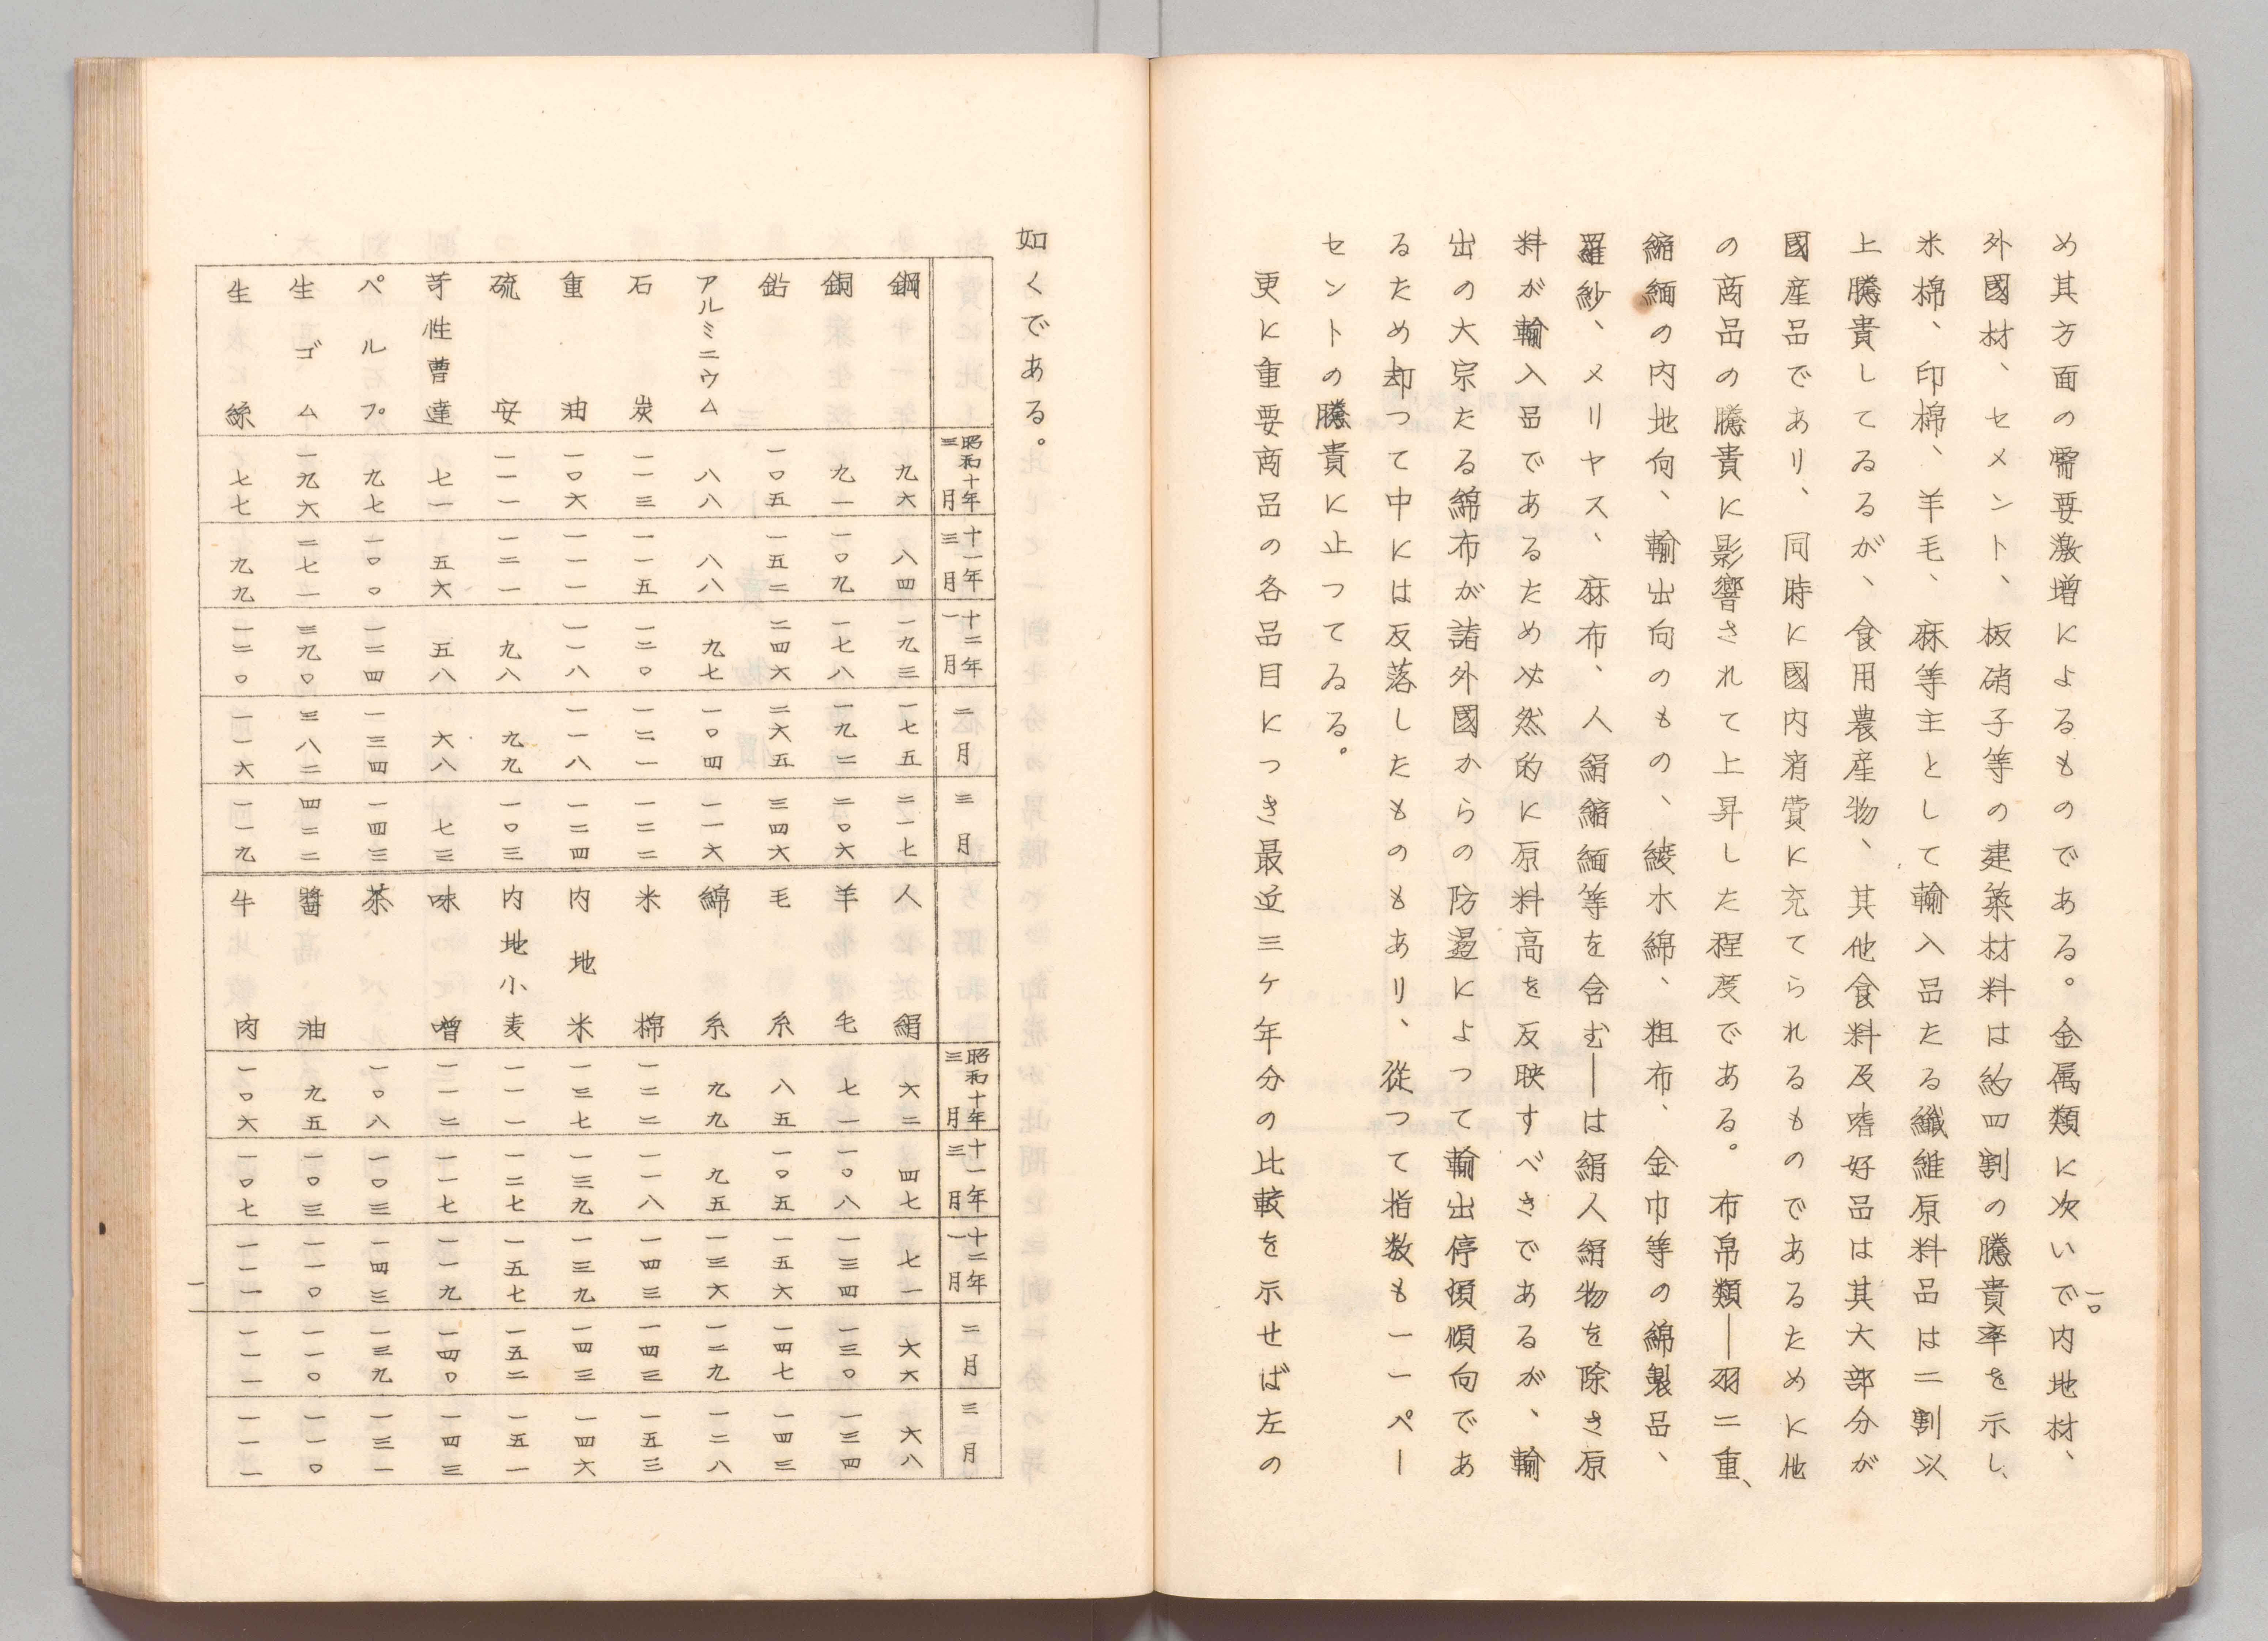 一〇
め其方面の需要激増によるものである。金属類に次いで内地材、
外國材、セメント、板硝子等の建築材料は約四割の騰貴率を示し、
米棉、印棉、羊毛、麻等主として輸入品たる纖維原料品は二割以
上騰貴してゐるが、食用農産物、其他食料及嗜好品は其大部分が
國産品であり、同時に國内消費に充てられるものであるために他
の商品の騰貴に影響されて上昇した程度である。布帛類―羽二重、
縮緬の内地向、輸出向のもの、綾木綿、粗布、金巾等の綿製品、
羅紗、メリヤス、麻布、人絹縮緬等を含む―は絹人絹物を除き原
料が輸入品であるため必然的に原料高を反映すべきであるが、輸
出の大宗たる綿布が諸外國からの防遏によつて輸出停頓傾向であ
るため却つて中には反落したものもあり、從つて指数も一一ペー
セントの騰貴に止つてゐる。
更に重要商品の各品目につき最近三ケ年分の比較を示せば左の
如くである。
昭和十年三月 十一年三月 十二年一月 二月 三月
鋼 九六 八四 一九三 一七五 二一七
銅 九一 一〇九 一七八 一九二 二〇六
鉛 一〇五 一五二 二四六 二六五 三四六
アルミニウム 八八 八八 九七 一〇四 一一六
石炭 一一三 一一五 一二〇 一二一 一二二
重油 一〇六 一一一 一一八 一一八 一二四
硫安 一一一 一二一 九八 九九 一〇三
苛性曹達 七一 五六 五八 六八 七三
パルプ 九七 一〇〇 一二四 一三四 一四三
生ゴム 一九六 二七一 三九〇 三八二 四二二
生絲 七七 九九 一二〇 一一六 一一九
昭和十年三月 十一年三月 十二年一月 二月 三月
人絹 六二 四七 七一 六六 六八
羊毛 七一 一〇八 一三四 一三〇 一三四
毛糸 八五 一〇五 一五六 一四七 一四三
綿糸 九九 九五 一三六 一二九 一二八
米棉 一二二 一一八 一四三 一四三 一五三
内地米 一三七 一三九 一三九 一四三 一四六
内地小麦 一一一 一二七 一五七 一五二 一五一
味噌 一一二 一一七 一一九 一四〇 一四三
茶 一〇八 一〇三 一四三 一三九 一三一
醬油 九五 一〇三 一一〇 一一〇 一一〇
牛肉 一〇六 一〇七 一一一 一一一 一一一
一一